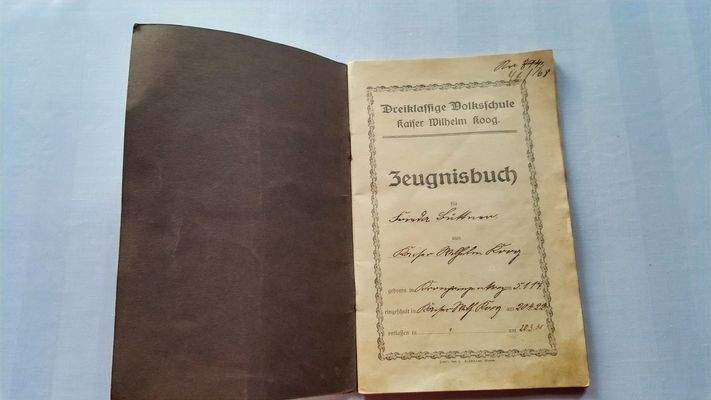 No 894
Dreiklassige Volksschule
Kaiser Wilhelm Koog.
Zeugnisbuch
für
Frieda Büttner
aus
Kaiser Wilhelm Koog
geboren in am 5.1.17
eingeschult in Kaiser Wilh. Koog am 20.4.23
entlassen in ? am 20.3.31